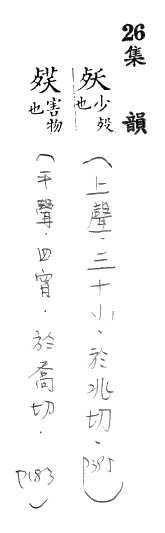 26 集韻
殀 少殁也
(上聲．三十小、於兆切．p395)
害物也
(平聲．四宵．於喬切．p183)